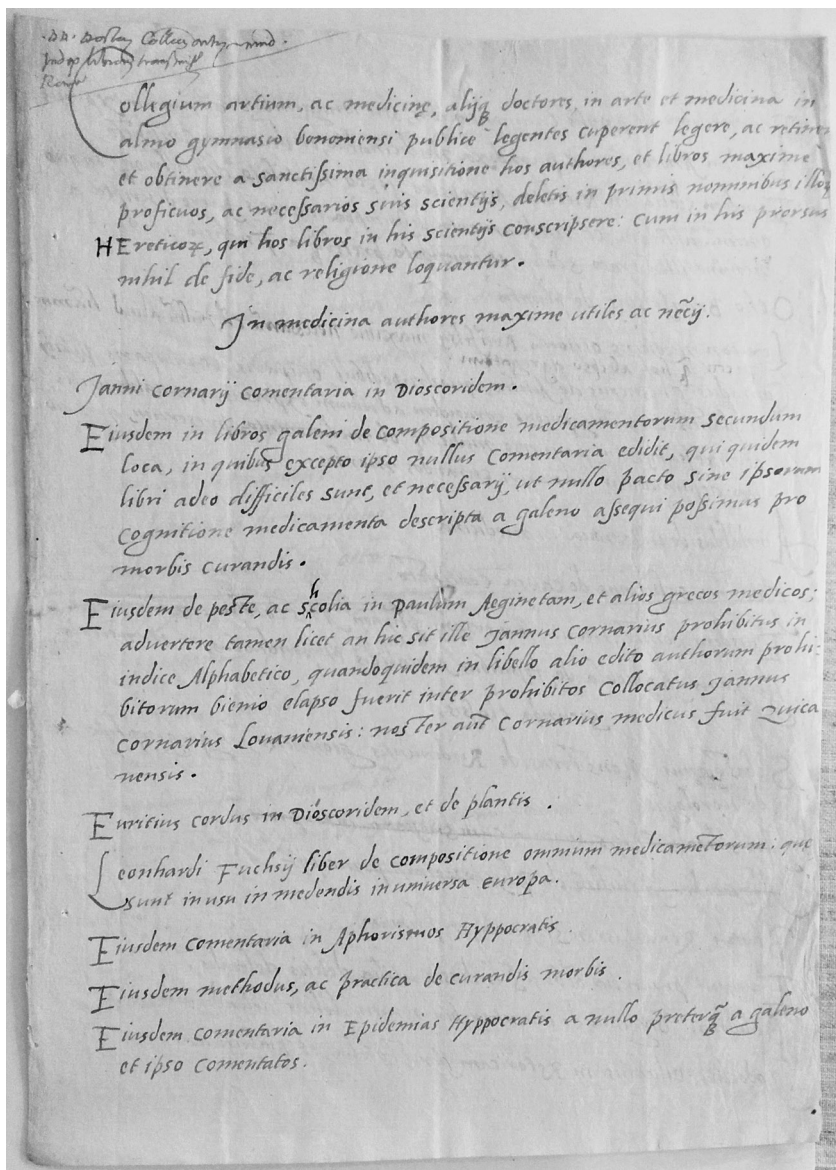 Collegium artium, ac medicinę, alijq doctores in arte et medicina in
almo gymnasio bononiensi publice legentes cuperent legere, ac retinere
et obtinere a sanctissima inquisitione hos authores, et libros maxime
proficuos, ac necessarios suis scientijs, deletis in primis nominibus illoꝝ
HEreticoꝝ, qui hos libros in his scientijs conscripsere: cum in his prorsus
nihil de fide, ac religione loquantur.
In medicina authores maxime utiles ac nec̃ij.
Janni cornarij comentaria in Dioscoridem.
Eiusdem in libros galeni de compositione medicamentorum secundum
loca, in quibus excepto ipso nullus comentaria edidit, qui quidem
libri adeo difficiles sunt, et necessarij, ut nullo pacto sine ipsorum
cognitione medicamenta descripta a galeno assequi possimus pro
morbis curandis.
Eiusdem de peste, ac scholia in Paulum Aeginetam, et alios grecos medicos;
advertere tamen licet an hic sit ille Jannus Cornarius prohibitus in
indice Alphabetico, quandoquidem in libello alio edito authorum prohi:
bitorum bienio elapso fuerit inter prohibitos collocatus Jannus
cornarius Lovaniensis: noster aut̃ Cornarius medicus fuit Zuica
uensis.
Euritius cordus in Dioscoridem, et de plantis.
Leonhardi Fuchsij liber de compositione omnium medicamẽtorum: que
sunt in usu in medendis in universa Europa.
Eiusdem comentaria in Aphorismos Hyppocratis
Eiusdem methodus, ac practica de curandis morbis.
Eiusdem comentaria in Epidemias Hyppocratis a nullo preterq̃ a galeno
et ipso comentatos.